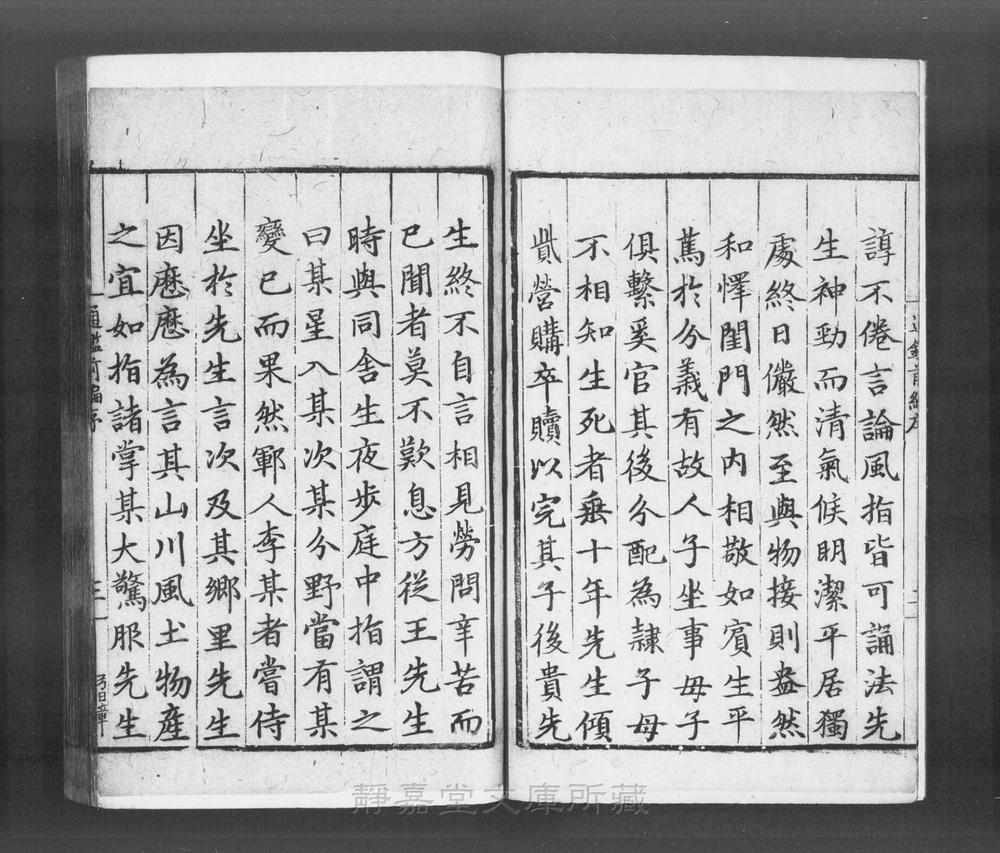 諄不倦言論風指皆可誦法先
生神勁而清氣候明潔平居獨
處終日儼然至與物接則盎然
和懌閨門之內相敬如賓生平
篤於分義有故人子坐事母子
俱繫奚官其後分配為隷子母
不相知生死者垂十年先生傾
貲營購卒贖以完其子後貴先
生終不自言相見勞問辛苦而
已聞者莫不歎息方從王先生
時與同舍生夜步庭中指謂之
曰某星入某次某分野當有某
變已而果然鄆人李某者嘗侍
坐於先生言次及其鄉里先生
因歷歷為言其山川風土物產
之宜如指諸掌某大驚服先生
通鑑前編序
三
靜嘉堂文庫所藏